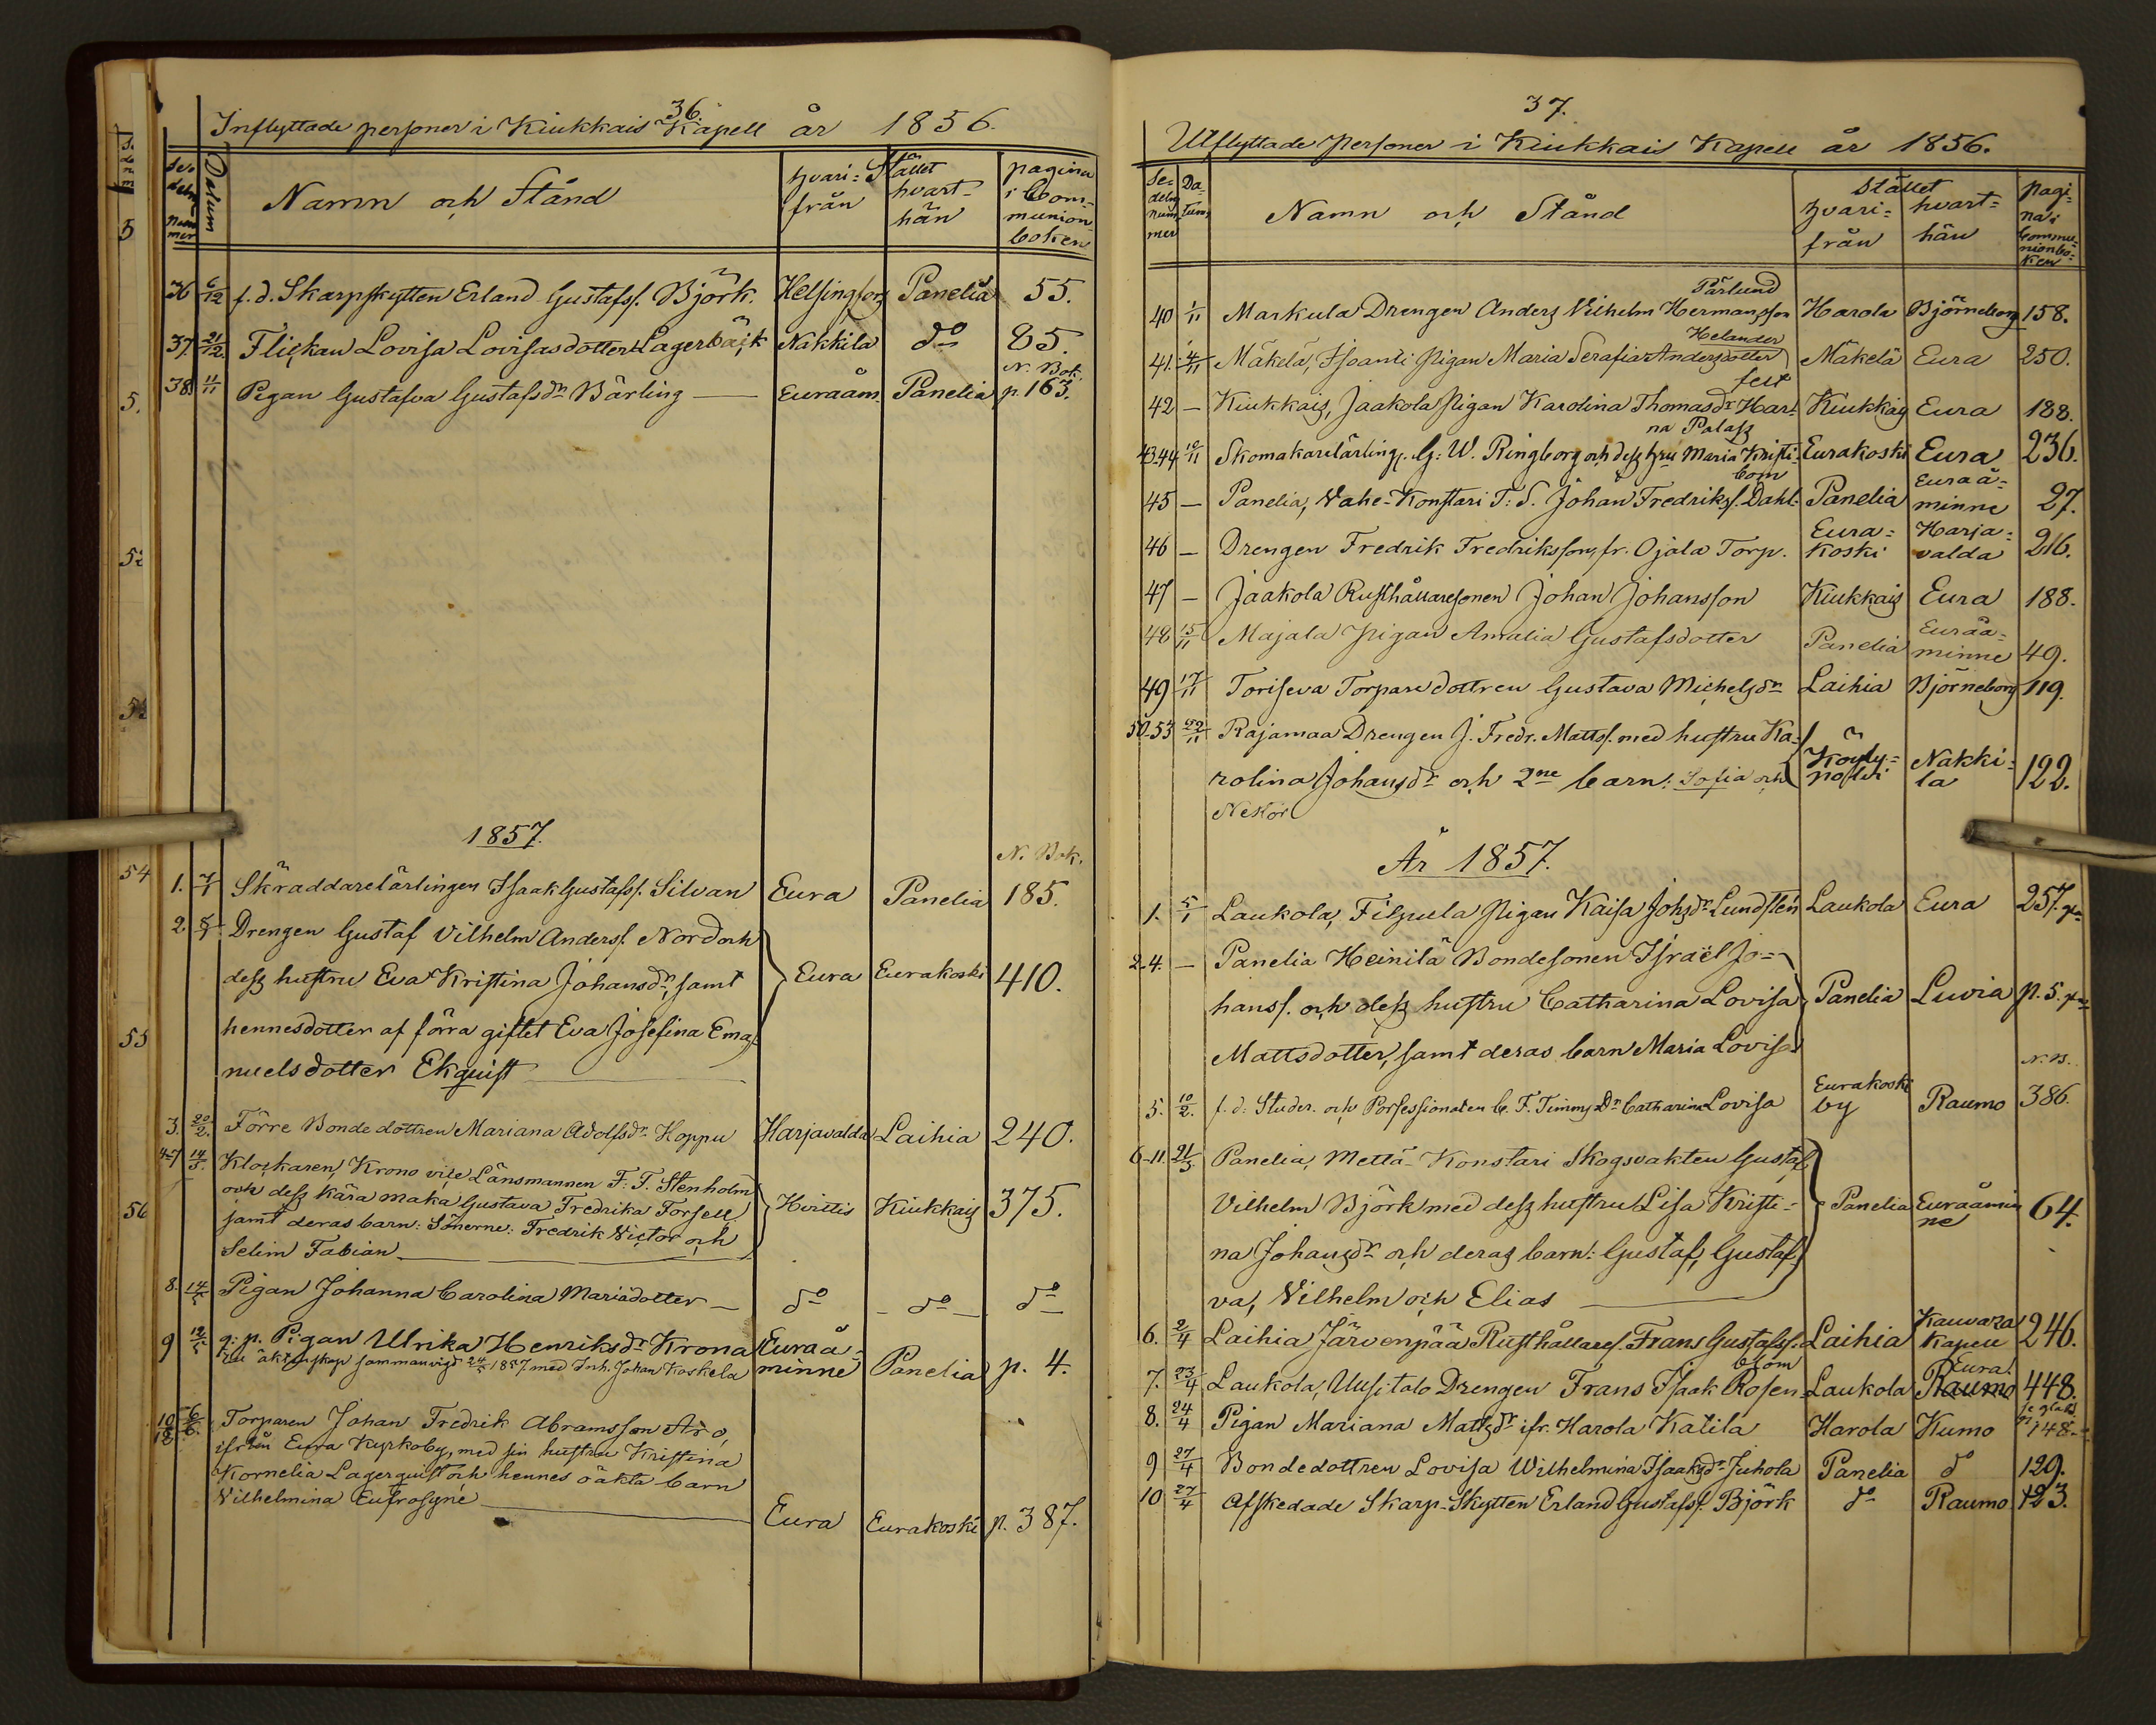 36.
Inflyttade personer i Kiukkais Kapell år 1856.
Sedelns nummer
Datum
Namn och Stånd
Stället
hvarifrån
hvarthän
pagina i Communionboken
36 6/12 f.d. Skarpskytten Erland Gustafss. Björk. Helsingfors Panelia 55.
37. 21/12. Flickan Lovisa Lovisasdotter Lagerbäck Nakkila do 85.
N. Bok.
38. 11/11 Pigan Gustafva Gustafsdr Bärling — Euraåm. Panelia p. 163.
1857.
N. Bok.
1. 7/1 Skräddarelärlingen Isaak Gustafss. Silvan Eura Panelia 185.
2. Drengen Gustaf Vilhelm Anderss. Nord och
dess hustru Eva Kristina Johansdr, samt Eura Eurakoski 410.
hennes dotter af förra giftet Eva Josefina Ema-
nuelsdotter Ekquist
3. 20/2. Förre Bondedottren Mariana Adolfsdr Hoppu Harjavalda Laihia 240.
4-7 14/5. Klockaren, Krono vice Länsmannen F. T. Stenholm
och dess kära maka Gustava Fredrika Forsell Hvittis Kiukkais 375.
samt deras barn: Sönerne: Fredrik Victor och
Selim Fabian
8. 14/5 Pigan Johanna Carolina Mariädotter — do — do — do
9 19/5 q: p. Pigan Ulrika Henriksdr Krona Euraå-
till äktenskap sammanvigd 24/5 1857 med Inh. Johan Koskela minne Panelia p. 4.
10-12 6/6. Torparen Johan Fredrik Abramsson Aro,
ifrån Eura Kyrkoby, med sin hustru Kristina
Kornelia Lagerquist och hennes oäkta barn
Vilhelmina Eufrosyne Eura Eurakoski p. 387.
37.
Utflyttade Personer i Kiukkais Kapell år 1856.
Sedelns nummer
Datum
Namn och Stånd
Stället
hvarifrån
hvarthän
pagina i Communionboken
Pärlund
40 1/11 Markula Drengen Anders Vilhelm Hermansson Harola Björneborg 158.
Helander
41. 4/11 Mäkelä, Isoanti Pigan Maria Serafia Andersdotter Mäkelä Eura 250.
felt
42 — Kiukkais, Jaakola Pigan Karolina Thomasdr Har- Kiukkais Eura 188.
na Palass
43.44 10/11 Skomakarelärling. G: W. Ringborg och dess hru Maria Kristi- Eurakoski Eura 236.
bom
45 — Panelia, Vahe-Konstari T: S. Johan Fredrikss. Dahl- Panelia Euraå-minne 27.
46 — Drengen Fredrik Fredriksson, fr. Ojala Torp. Eura-koski Harja-valda 216.
47 — Jaakola Rusthållaresonen Johan Johansson Kiukkais Eura 188.
48 15/11 Majala Pigan Amalia Gustafsdotter Panelia Euraå-minne 49.
49 17/11 Toriseva Torparedottren Gustava Michelsdr Laihia Björneborg 119.
50-53 Rajamaa Drengen J. Fredr. Mattss. med hustru Ka-
rolina Johansdr och 2ne barn: Sofia och Köyly-polvi Nakki-la 122.
Nestor
År 1857.
1. 5/1 Laukola, Filppula Pigan Kaisa Johsdr Lundstén Laukola Eura 257.
2-4. — Panelia Heinilä Bondesonen Israël Jo-
hanss. och dess hustru Catharina Lovisa Panelia Luvia p. 5.
Mattsdotter, samt deras barn Maria Lovisa
N. B.
5. 10/2. f.d. Studer. och Porfessionaten C. F. Timmys Dr Catharina Lovisa Eurakoski by Raumo 386.
6-11. 21/3. Panelia, Mettä-Konstari Skogsvakten Gustaf
Vilhelm Björk med dess hustru Lisa Kristi- Panelia Euraåminne 64.
na Johansdr och deras barn: Gustaf, Gustaf-
va, Vilhelm och Elias
6. 2/4 Laihia Järvenpää Rusthållares. Frans Gustafss. Laihia Kauvatsa Kapell 246.
blom
7. 23/4 Laukola, Uusitalo Drengen Frans Isaak Rosen- Laukola Raumo Eura! 448.
8. 24/4 Pigan Mariana Mattsdr ifr. Harola Katila Harola Kumo 148.
9 27/4 Bondedottren Lovisa Wilhelmina Isaaksdr Juhola Panelia do 129.
10 27/4 Afskedade Skarp-Skytten Erland Gustafss. Björk do Raumo 123.
5
5.
52
54
54
55
56